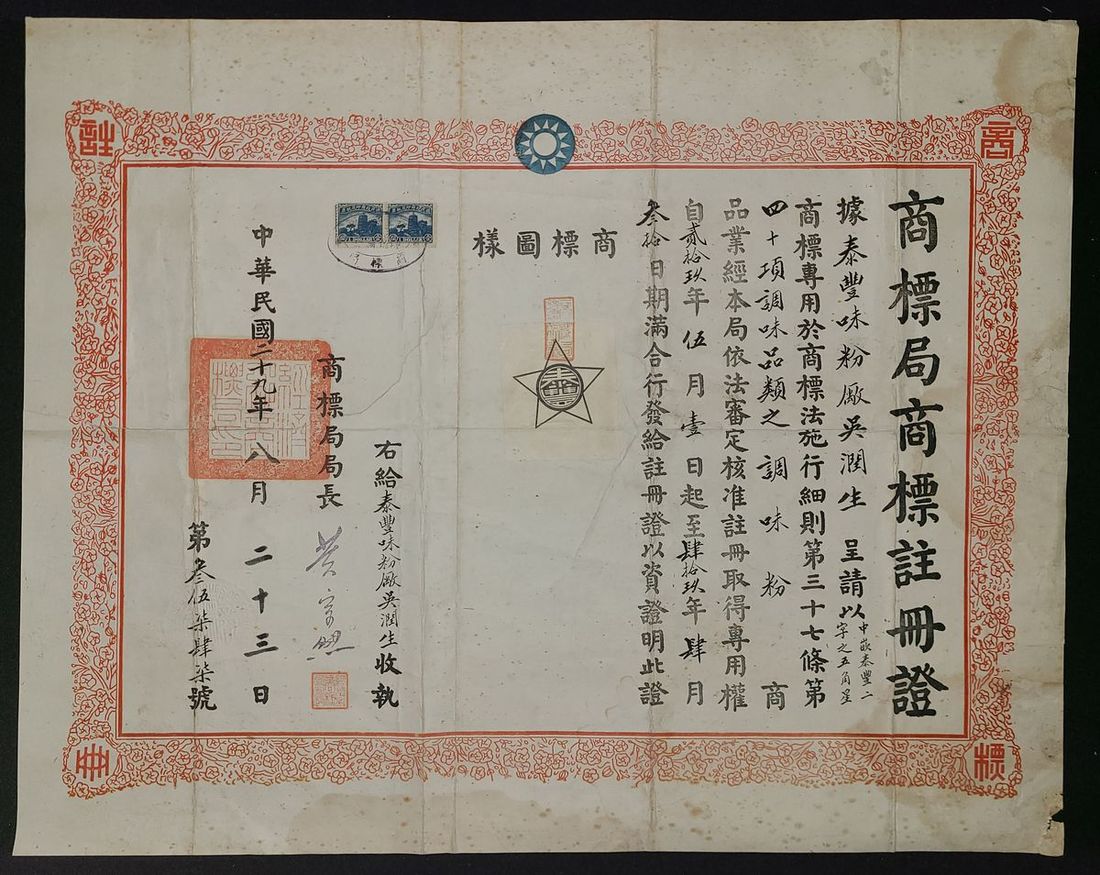 商標局商標註冊證
據泰豐味粉廠吳潤生 呈請以中嵌泰豐二
字之五角星
商標專用於商標法施行細則第三十七條第
四十項調味品類之 調味粉 商
品業經本局依法審定核准註冊取得專用權
自貳拾玖年伍月壹日起至肆拾玖年肆月
叁拾日期滿合行發給註冊證以資證明此證
商標圖樣
右給泰豐味粉廠吳潤生收執
商標局局長
中華民國二十九年八月二十三日
第叁伍柒肆柒號
商
標
註
冊